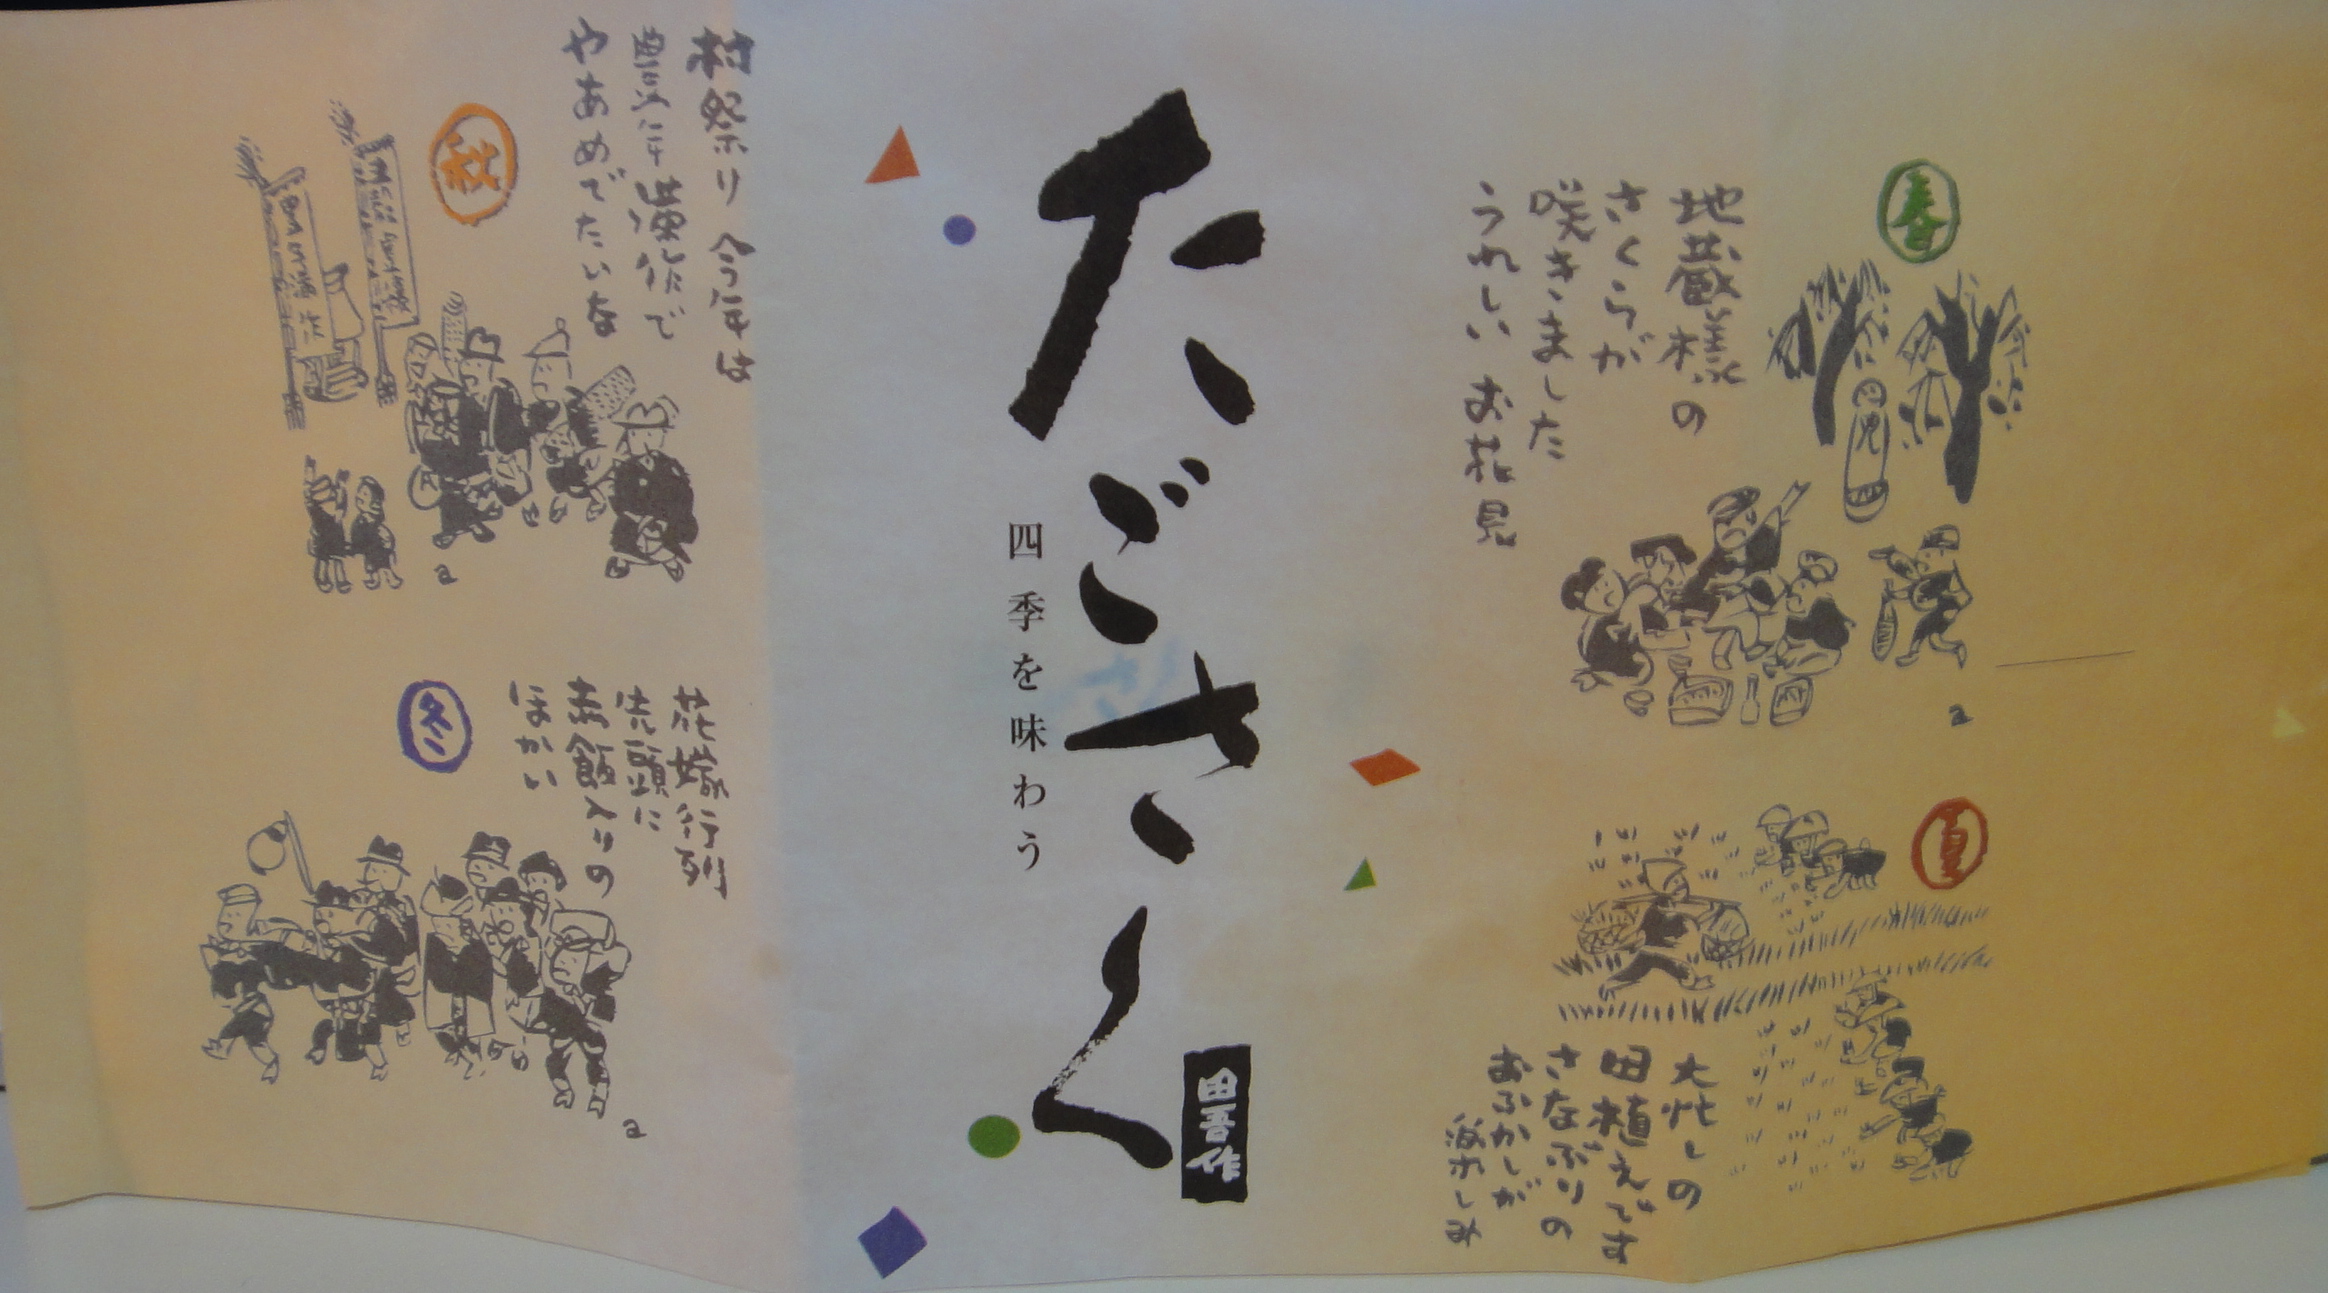 春
地蔵様の
さくらが
咲きました
うれしい お花見
a
夏
大忙しの
田植えです
さなぶりの
おふかしが
楽しみ
たごさく
田吾作
四季を味わう
村祭り 今年は
豊年満作で
やあめでたいな
秋
a
花嫁行列
先頭に
赤飯入りの
ほかい
冬
a